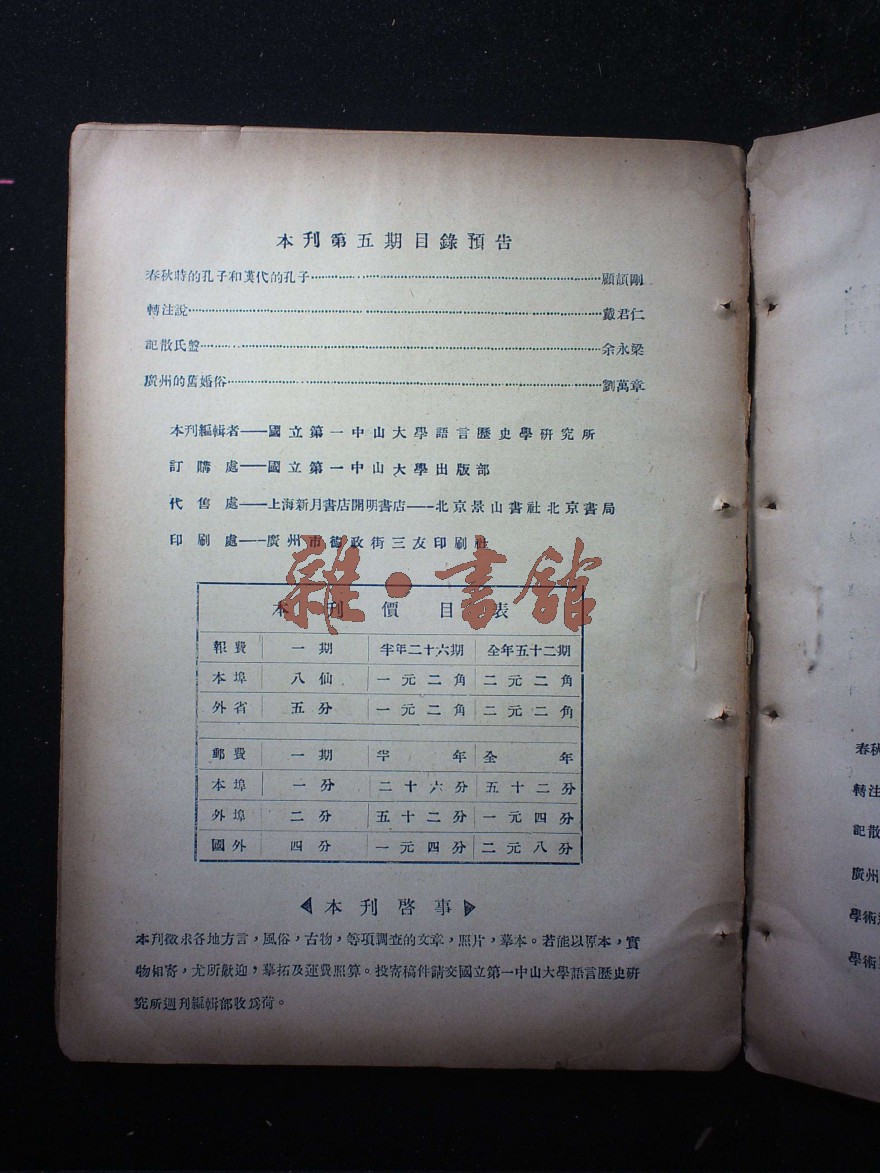 本刊第五期目錄預告
春秋時的孔子和漢代的孔子……顧頡剛
轉注說……戴君仁
記散氏盤……余永梁
廣州的舊婚俗……劉萬章
本刊編輯者——國立第一中山大學語言歷史學研究所
訂購處——國立第一中山大學出版部
代售處——上海新月書店開明書店——北京景山書社北京書局
印刷處——廣州市街三友印刷社
雜·書館
本刊價目表
報費 一期 半年二十六期 全年五十二期
本埠 八仙 一元二角 二元二角
外省 五分 一元二角 二元二角
郵費 一期 半年 全年
本埠 一分 二十六分 五十二分
外埠 二分 五十二分 一元四分
國外 四分 一元四分 二元八分
本刊啓事
本刊徵求各地方言，風俗，古物，等項調查的文章，照片，摹本。若能以原本，實
物相寄，尤所歡迎，摹拓及運費照算。投寄稿件請交國立第一中山大學語言歷史研
究所週刊編輯部收爲荷。
春秋
轉注
記散
廣州
學術
學術